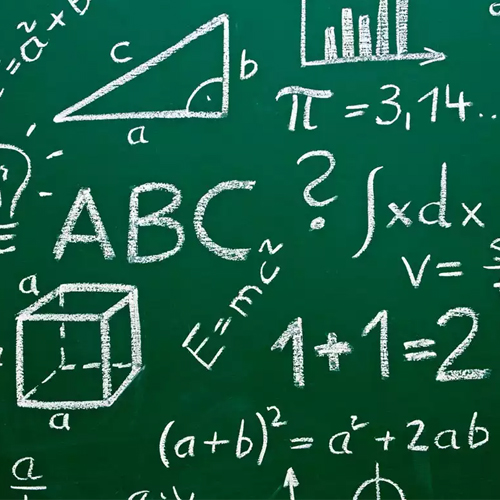 = a² + b
c
b
a
π = 3,14..
ABC
?
∫ x dx
v =
a
a
E=mc²
1+1=2
(a+b)² = a² + 2ab
a